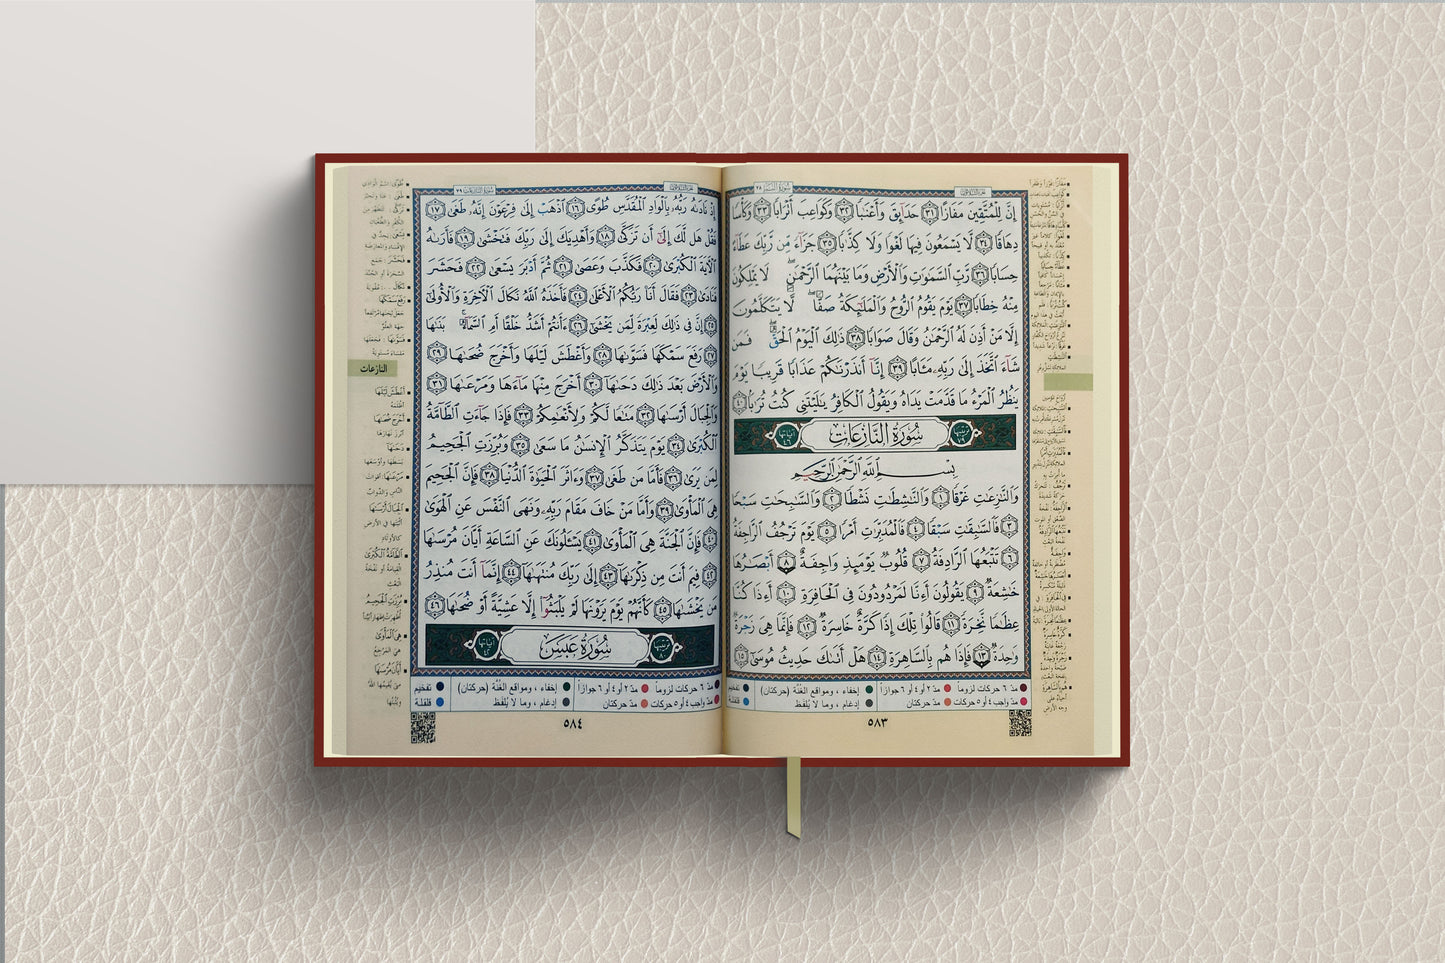 سُورَةُ النَّبَإِ ٧٨
إِنَّ لِلْمُتَّقِينَ مَفَازًا ٣١ حَدَآئِقَ وَأَعْنَـٰبًا ٣٢ وَكَوَاعِبَ أَتْرَابًا ٣٣ وَكَأْسًا
دِهَاقًا ٣٤ لَّا يَسْمَعُونَ فِيهَا لَغْوًا وَلَا كِذَّٰبًا ٣٥ جَزَآءً مِّن رَّبِّكَ عَطَآءً
حِسَابًا ٣٦ رَّبِّ ٱلسَّمَـٰوَٰتِ وَٱلْأَرْضِ وَمَا بَيْنَهُمَا ٱلرَّحْمَـٰنِ ۖ لَا يَمْلِكُونَ
مِنْهُ خِطَابًا ٣٧ يَوْمَ يَقُومُ ٱلرُّوحُ وَٱلْمَلَـٰٓئِكَةُ صَفًّا ۖ لَّا يَتَكَلَّمُونَ
إِلَّا مَنْ أَذِنَ لَهُ ٱلرَّحْمَـٰنُ وَقَالَ صَوَابًا ٣٨ ذَٰلِكَ ٱلْيَوْمُ ٱلْحَقُّ ۖ فَمَن
شَآءَ ٱتَّخَذَ إِلَىٰ رَبِّهِۦ مَـَٔابًا ٣٩ إِنَّآ أَنذَرْنَـٰكُمْ عَذَابًا قَرِيبًا يَوْمَ
يَنظُرُ ٱلْمَرْءُ مَا قَدَّمَتْ يَدَاهُ وَيَقُولُ ٱلْكَافِرُ يَـٰلَيْتَنِى كُنتُ تُرَٰبًۢا ٤٠
ترتيبها ٧٩ سُورَةُ النَّازِعَاتِ آياتها ٤٦
بِسْمِ ٱللَّهِ ٱلرَّحْمَـٰنِ ٱلرَّحِيمِ
وَٱلنَّـٰزِعَـٰتِ غَرْقًا ١ وَٱلنَّـٰشِطَـٰتِ نَشْطًا ٢ وَٱلسَّـٰبِحَـٰتِ سَبْحًا
٣ فَٱلسَّـٰبِقَـٰتِ سَبْقًا ٤ فَٱلْمُدَبِّرَٰتِ أَمْرًا ٥ يَوْمَ تَرْجُفُ ٱلرَّاجِفَةُ
٦ تَتْبَعُهَا ٱلرَّادِفَةُ ٧ قُلُوبٌ يَوْمَئِذٍ وَاجِفَةٌ ٨ أَبْصَـٰرُهَا
خَـٰشِعَةٌ ٩ يَقُولُونَ أَءِنَّا لَمَرْدُودُونَ فِى ٱلْحَافِرَةِ ١٠ أَءِذَا كُنَّا
عِظَـٰمًا نَّخِرَةً ١١ قَالُوا۟ تِلْكَ إِذًا كَرَّةٌ خَاسِرَةٌ ١٢ فَإِنَّمَا هِىَ زَجْرَةٌ
وَٰحِدَةٌ ١٣ فَإِذَا هُم بِٱلسَّاهِرَةِ ١٤ هَلْ أَتَىٰكَ حَدِيثُ مُوسَىٰٓ ١٥
مدّ ٦ حركات لزوماً مدّ ٢ أو ٤ أو ٦ جوازاً إخفاء ، ومواقع الغُنَّة (حركتان) تفخيم
مدّ واجب ٤ أو ٥ حركات مدّ حركتان إدغام ، وما لا يُلفَظ قلقلة
٥٨٣
سُورَةُ النَّازِعَاتِ ٧٩
إِذْ نَادَىٰهُ رَبُّهُۥ بِٱلْوَادِ ٱلْمُقَدَّسِ طُوًى ١٦ ٱذْهَبْ إِلَىٰ فِرْعَوْنَ إِنَّهُۥ طَغَىٰ ١٧
فَقُلْ هَل لَّكَ إِلَىٰٓ أَن تَزَكَّىٰ ١٨ وَأَهْدِيَكَ إِلَىٰ رَبِّكَ فَتَخْشَىٰ ١٩ فَأَرَىٰهُ
ٱلْـَٔايَةَ ٱلْكُبْرَىٰ ٢٠ فَكَذَّبَ وَعَصَىٰ ٢١ ثُمَّ أَدْبَرَ يَسْعَىٰ ٢٢ فَحَشَرَ
فَنَادَىٰ ٢٣ فَقَالَ أَنَا۠ رَبُّكُمُ ٱلْأَعْلَىٰ ٢٤ فَأَخَذَهُ ٱللَّهُ نَكَالَ ٱلْـَٔاخِرَةِ وَٱلْأُولَىٰٓ
٢٥ إِنَّ فِى ذَٰلِكَ لَعِبْرَةً لِّمَن يَخْشَىٰٓ ٢٦ ءَأَنتُمْ أَشَدُّ خَلْقًا أَمِ ٱلسَّمَآءُ ۚ بَنَىٰهَا
٢٧ رَفَعَ سَمْكَهَا فَسَوَّىٰهَا ٢٨ وَأَغْطَشَ لَيْلَهَا وَأَخْرَجَ ضُحَىٰهَا ٢٩
وَٱلْأَرْضَ بَعْدَ ذَٰلِكَ دَحَىٰهَآ ٣٠ أَخْرَجَ مِنْهَا مَآءَهَا وَمَرْعَىٰهَا ٣١
وَٱلْجِبَالَ أَرْسَىٰهَا ٣٢ مَتَـٰعًا لَّكُمْ وَلِأَنْعَـٰمِكُمْ ٣٣ فَإِذَا جَآءَتِ ٱلطَّآمَّةُ
ٱلْكُبْرَىٰ ٣٤ يَوْمَ يَتَذَكَّرُ ٱلْإِنسَـٰنُ مَا سَعَىٰ ٣٥ وَبُرِّزَتِ ٱلْجَحِيمُ
لِمَن يَرَىٰ ٣٦ فَأَمَّا مَن طَغَىٰ ٣٧ وَءَاثَرَ ٱلْحَيَوٰةَ ٱلدُّنْيَا ٣٨ فَإِنَّ ٱلْجَحِيمَ
هِىَ ٱلْمَأْوَىٰ ٣٩ وَأَمَّا مَنْ خَافَ مَقَامَ رَبِّهِۦ وَنَهَى ٱلنَّفْسَ عَنِ ٱلْهَوَىٰ
٤٠ فَإِنَّ ٱلْجَنَّةَ هِىَ ٱلْمَأْوَىٰ ٤١ يَسْـَٔلُونَكَ عَنِ ٱلسَّاعَةِ أَيَّانَ مُرْسَىٰهَا
٤٢ فِيمَ أَنتَ مِن ذِكْرَىٰهَآ ٤٣ إِلَىٰ رَبِّكَ مُنتَهَىٰهَآ ٤٤ إِنَّمَآ أَنتَ مُنذِرُ
مَن يَخْشَىٰهَا ٤٥ كَأَنَّهُمْ يَوْمَ يَرَوْنَهَا لَمْ يَلْبَثُوٓا۟ إِلَّا عَشِيَّةً أَوْ ضُحَىٰهَا ٤٦
ترتيبها ٨٠ سُورَةُ عَبَسَ آياتها ٤٢
مدّ ٦ حركات لزوماً مدّ ٢ أو ٤ أو ٦ جوازاً إخفاء ، ومواقع الغُنَّة (حركتان) تفخيم
مدّ واجب ٤ أو ٥ حركات مدّ حركتان إدغام ، وما لا يُلفَظ قلقلة
النازعات
٥٨٤